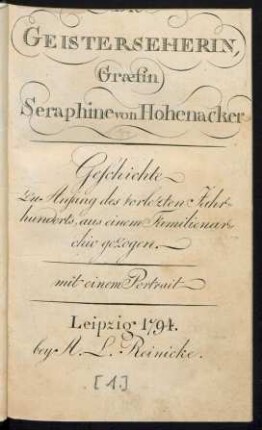 DIE
GEISTERSEHERIN,
Græfin
Seraphine von Hohenacker
Geschichte
zu Anfang des vorletzten Jahr-
hunderts, aus einem Familienar-
chiv gezogen.
mit einem Portrait
Leipzig 1794.
bey M. L. Reinicke.
[1]